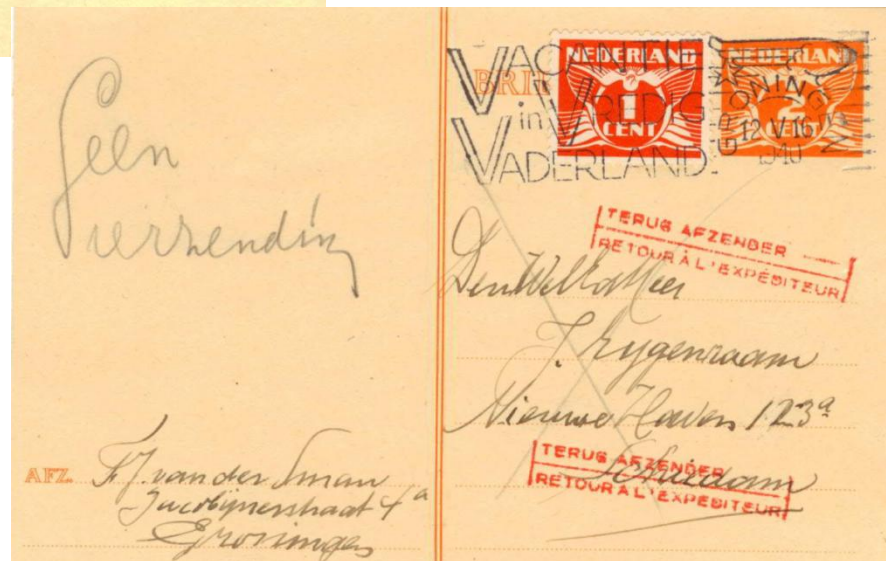 Geen
verzending
AFZ. F.J. van der Sman
Jacobijnerstraat 4a
Groningen
BRI
NEDERLAND
1
CENT
NEDERLAND
2
CENT
VACANTIE
in VREDIG
VADERLAND.
GRONINGEN
12 V 16
1940
TERUG AFZENDER
RETOUR À L'EXPÉDITEUR
Den Weled. Heer
J. Eygenraam
Nieuwe Haven 123a
Schiedam
TERUG AFZENDER
RETOUR À L'EXPÉDITEUR